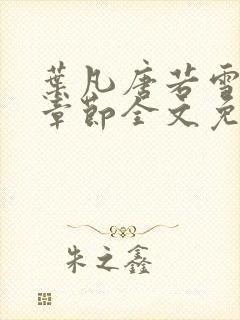 葉凡唐若雪
章節全文免
朱之鑫